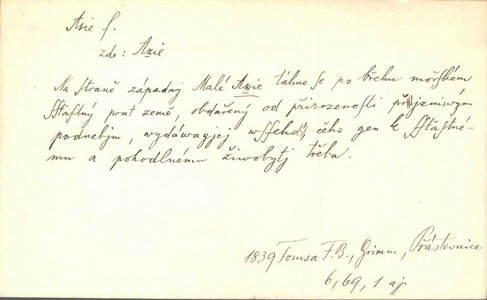 Asie f.
zde: Azie
Na straně západnj Malé Azie táhne se po břehu mořském
ssťastný prut země, obdařený od přirozenosti přjzniwým
podnebjm, wydáwagjcj wssecko, čeho gen k ssťastné-
mu a pohodlnému žiwobytj třeba.
1839 Tomsa F.B., Grimm, Přástewnice
6, 69, 1 aj.